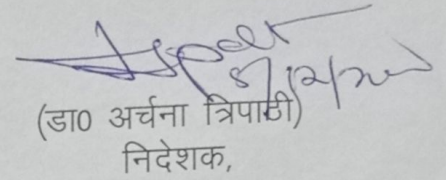 (डा0 अर्चना त्रिपाठी)
निदेशक,